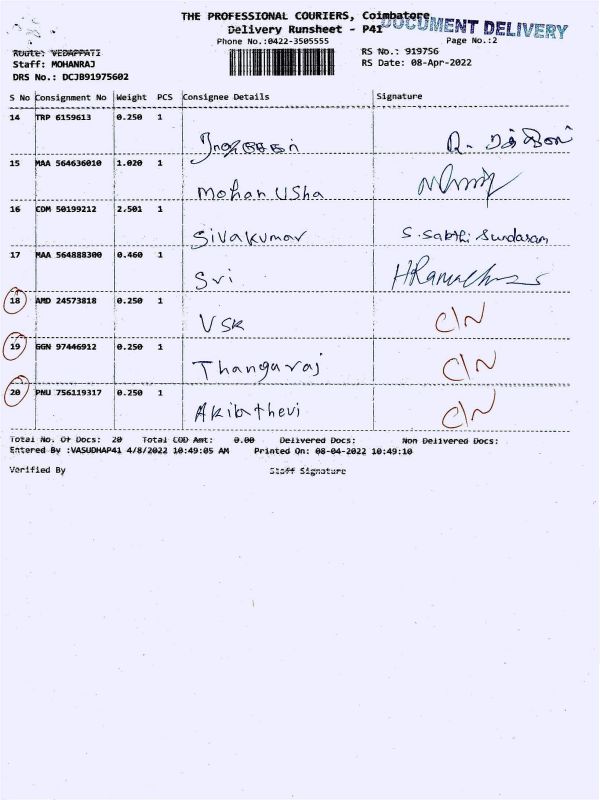 THE PROFESSIONAL COURIERS, Coimbatore
DOCUMENT DELIVERY
Delivery Runsheet - P41
Phone No.:0422-3505555
Page No.:2
Route: VEDAPPATI
RS No.: 919756
Staff: MOHANRAJ
RS Date: 08-Apr-2022
DRS No.: DCJB91975602
S No Consignment No Weight PCS Consignee Details Signature
14 TRP 6159613 0.250 1
15 MAA 564636010 1.020 1 Mohan Usha
16 COM 50199212 2.501 1 Sivakumar S. Sakthi Sundaram
17 MAA 564888300 0.460 1 Sri
18 AMD 24573818 0.250 1 VSK C/N
19 GGN 97446912 0.250 1 Thangaraj C/N
20 PNU 756119317 0.250 1 Akilathevi C/N
Total No. Of Docs: 20 Total COD Amt: 0.00 Delivered Docs: Non Delivered Docs:
Entered By :VASUDHAP41 4/8/2022 10:49:05 AM Printed On: 08-04-2022 10:49:10
Verified By Staff Signature